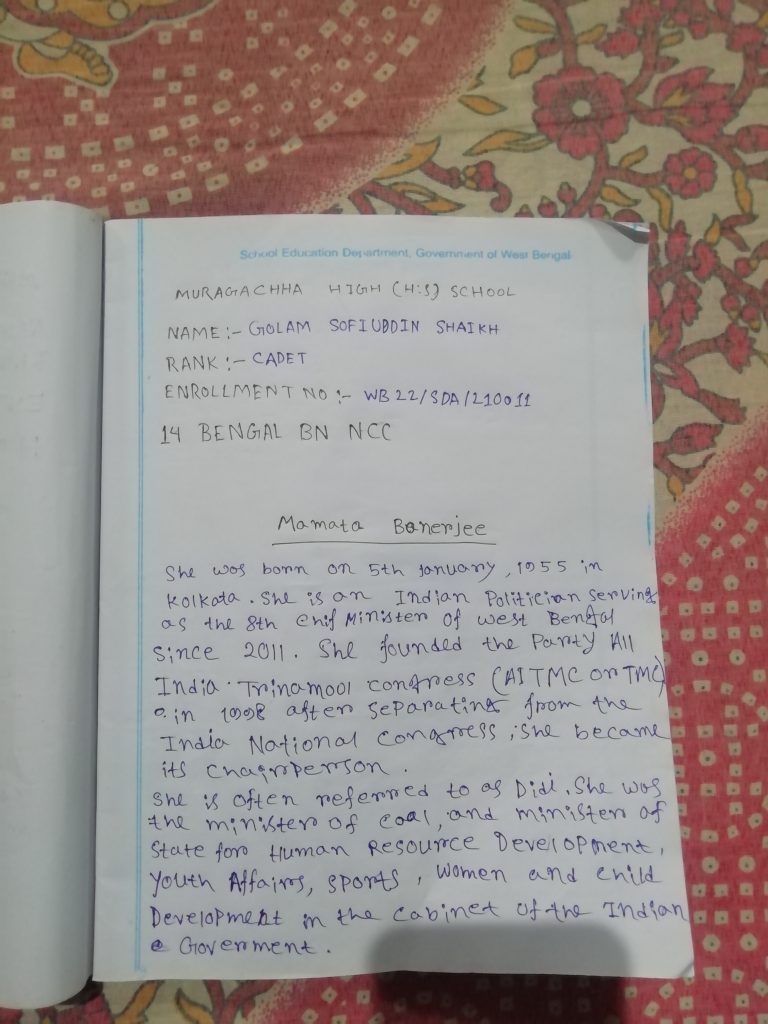 School Education Department, Government of West Bengal
MURAGACHHA HIGH (H:S) SCHOOL
NAME :- GOLAM SOFIUDDIN SHAIKH
RANK :- CADET
ENROLLMENT NO :- WB 22/SDA/210011
14 BENGAL BN NCC
Mamata Banerjee
She was born on 5th January, 1955 in
Kolkata. She is an Indian Politician serving
as the 8th Chif Minister of West Bengal
Since 2011. She founded the Party All
India Trinamool congress (AITMC or TMC)
in 1998 after separating from the
India National Congress, she became
its chairperson.
She is often referred to as Didi. She was
the minister of coal, and minister of
State for Human Resource Development,
Youth Affairs, sports, women and child
Development in the cabinet of the Indian
Goverment.